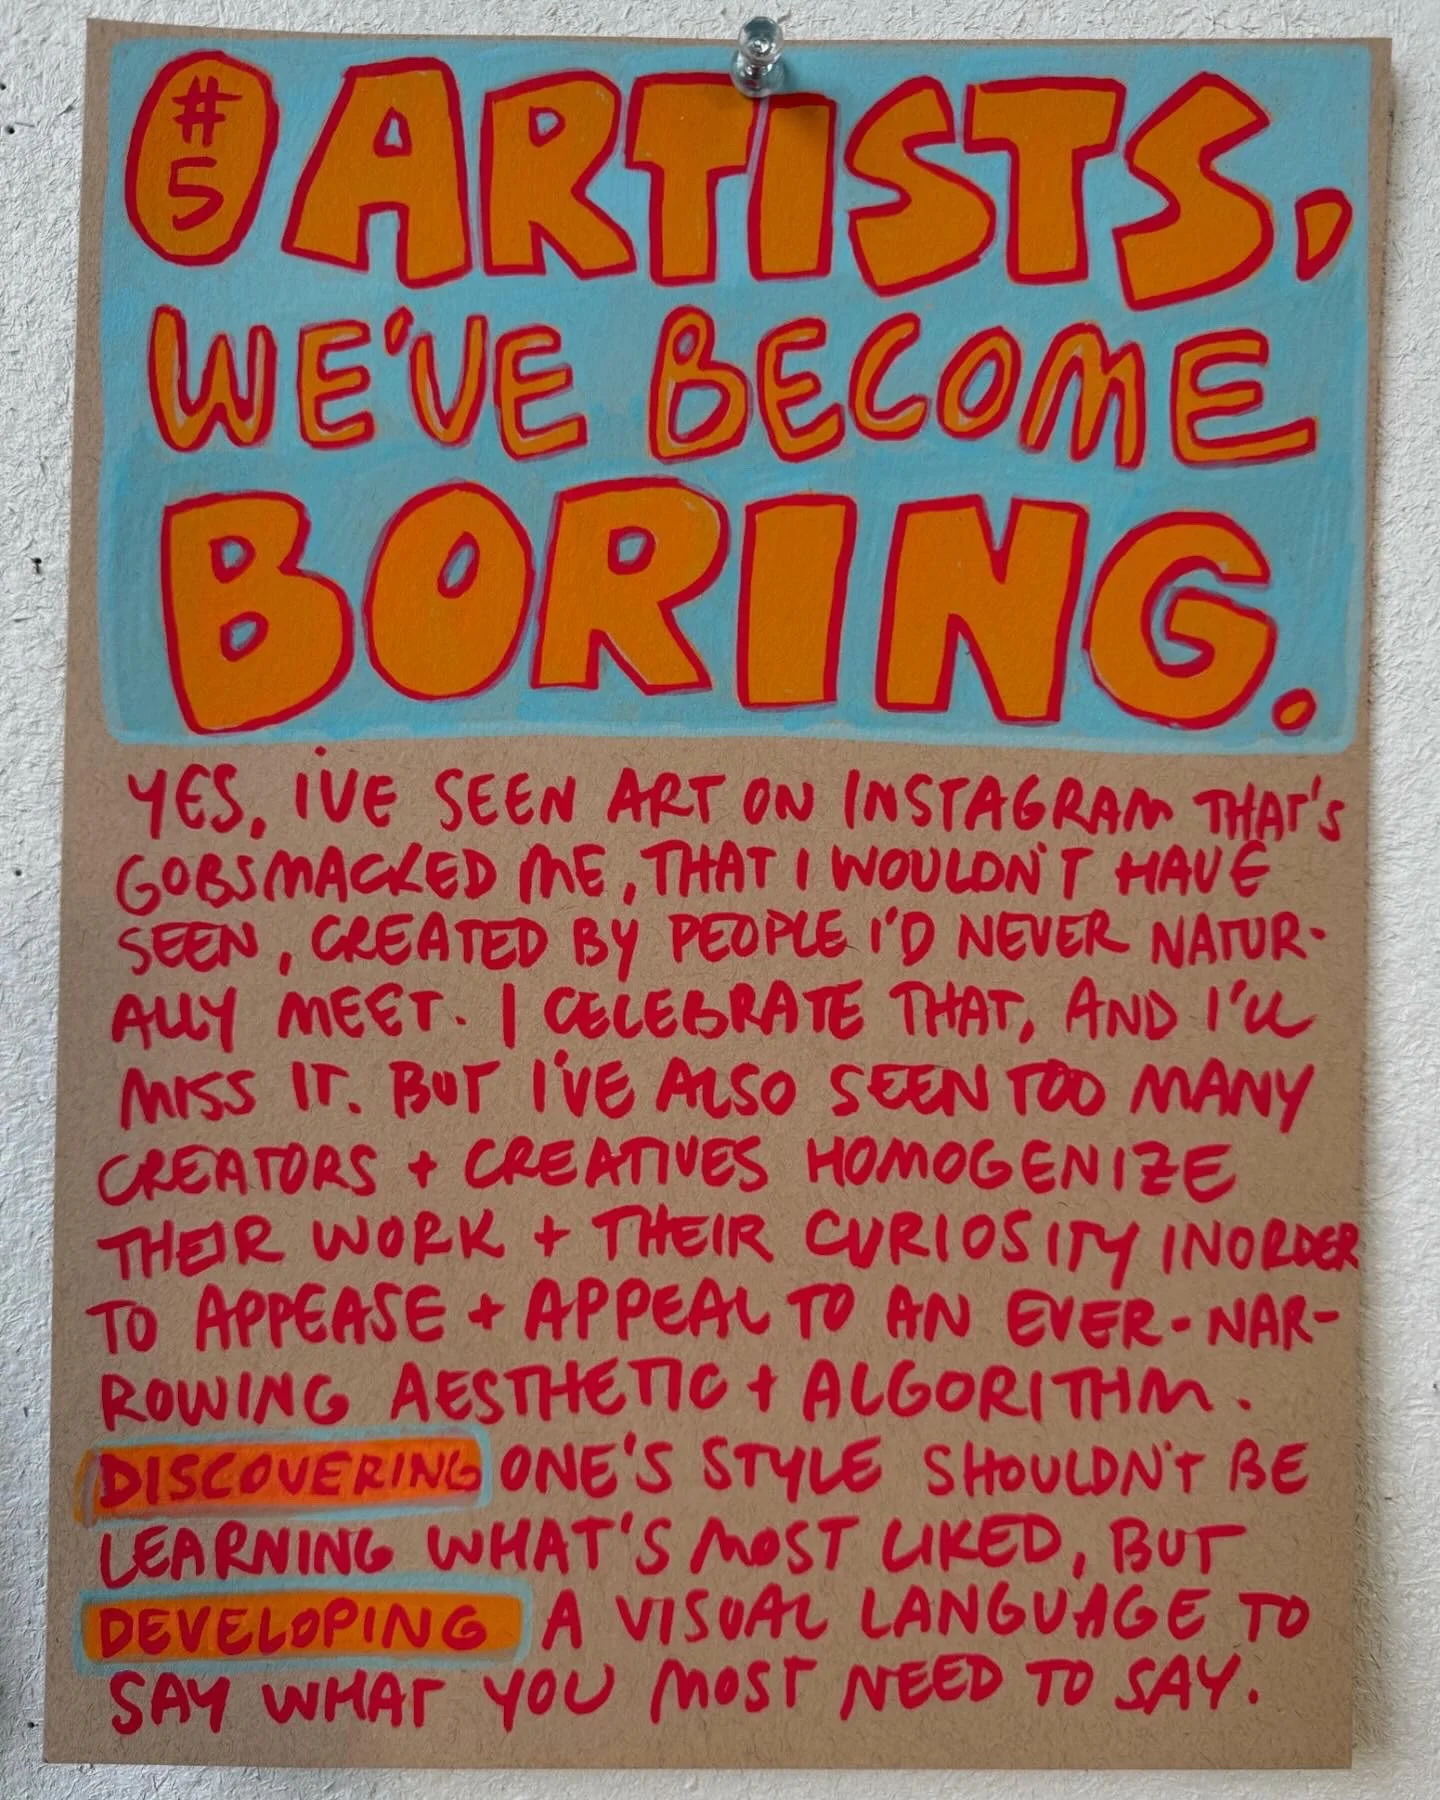 #5 ARTISTS,
WE'VE BECOME
BORING.
YES, I'VE SEEN ART ON INSTAGRAM THAT'S
GOBSMACKED ME, THAT I WOULDN'T HAVE
SEEN, CREATED BY PEOPLE I'D NEVER NATUR-
ALLY MEET. I CELEBRATE THAT, AND I'LL
MISS IT. BUT I'VE ALSO SEEN TOO MANY
CREATORS + CREATIVES HOMOGENIZE
THEIR WORK + THEIR CURIOSITY IN ORDER
TO APPEASE + APPEAL TO AN EVER-NAR-
ROWING AESTHETIC + ALGORITHM.
DISCOVERING ONE'S STYLE SHOULDN'T BE
LEARNING WHAT'S MOST LIKED, BUT
DEVELOPING A VISUAL LANGUAGE TO
SAY WHAT YOU MOST NEED TO SAY.